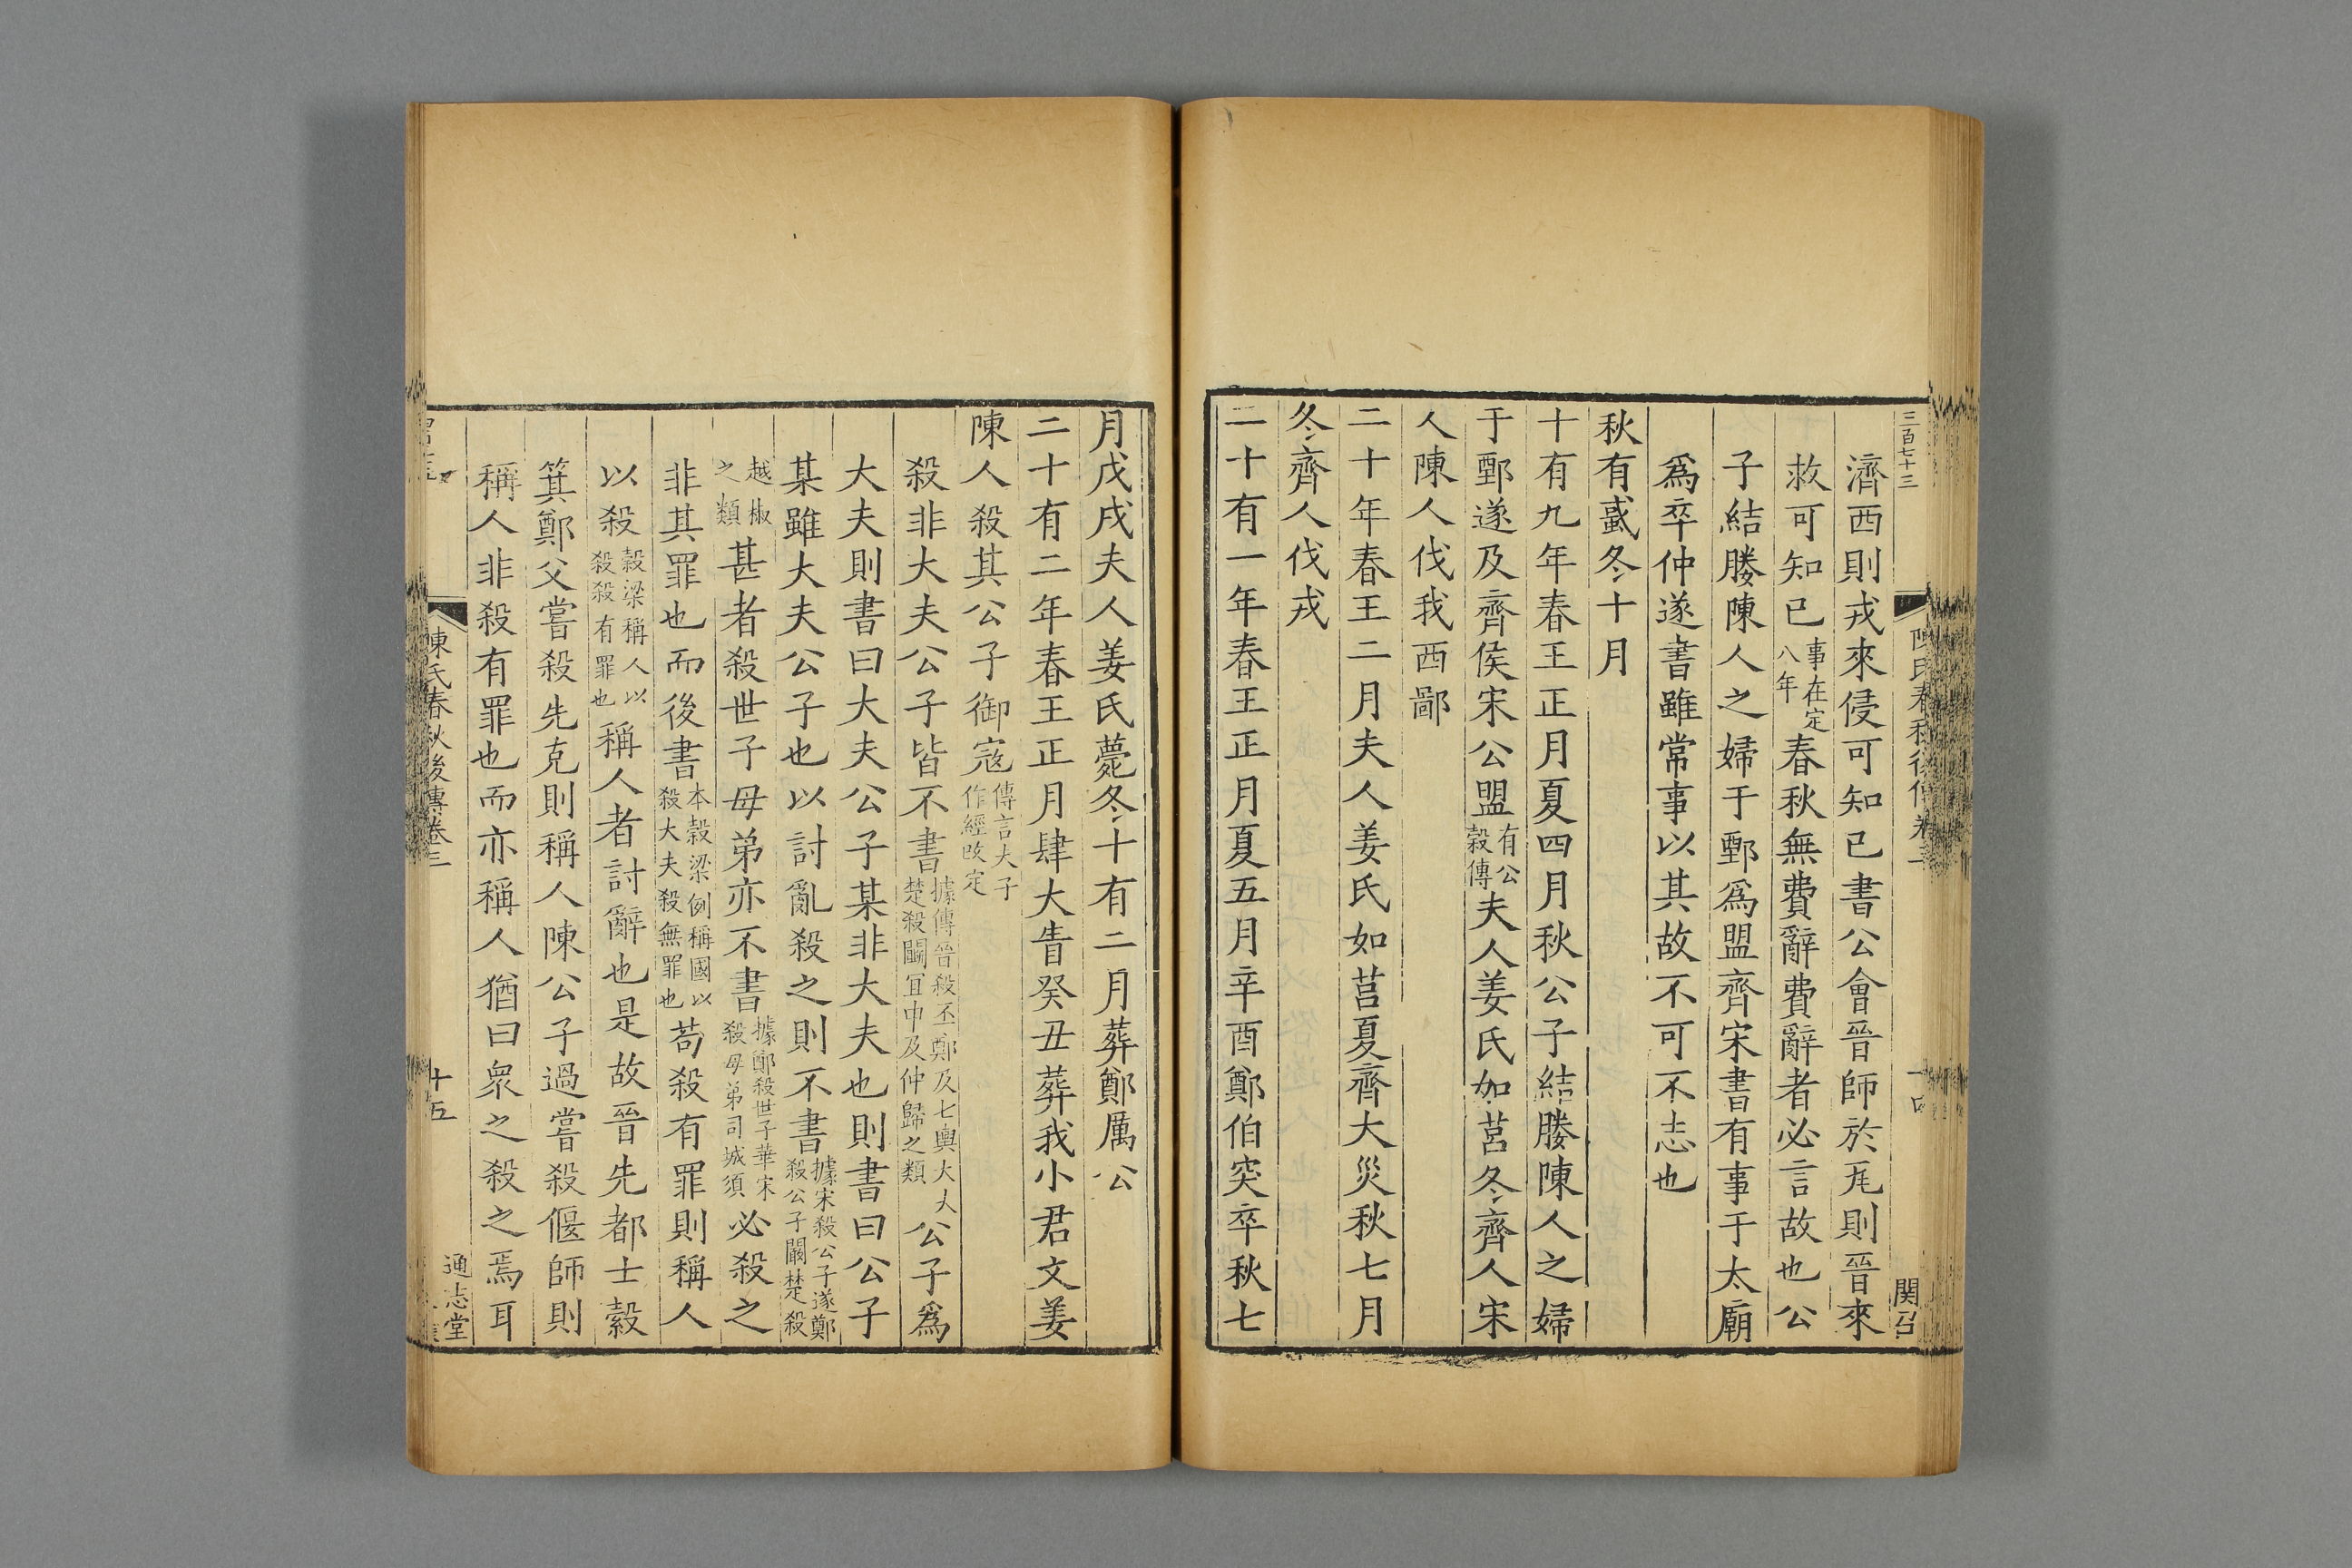 三百七十三
陳氏春秋後傳卷三
濟西則戎來侵可知已書公會晉師於瓦則晉來
救可知已事在定八年春秋無費辭費辭者必言故也公
子結媵陳人之婦于鄄爲盟齊宋書有事于太廟
爲卒仲遂書雖常事以其故不可不志也
秋有蜮冬十月
十有九年春王正月夏四月秋公子結媵陳人之婦
于鄄遂及齊侯宋公盟有公穀傳夫人姜氏如莒冬齊人宋
人陳人伐我西鄙
二十年春王二月夫人姜氏如莒夏齊大災秋七月
冬齊人伐戎
二十有一年春王正月夏五月辛酉鄭伯突卒秋七
月戊戌夫人姜氏薨冬十有二月葬鄭厲公
二十有二年春王正月肆大眚癸丑葬我小君文姜
陳人殺其公子御寇傳言大子作經改定
殺非大夫公子皆不書據傳晉殺丕鄭及七輿大夫楚殺鬬宜申及仲歸之類公子爲
大夫則書曰大夫公子某非大夫也則書曰公子
某雖大夫公子也以討亂殺之則不書據宋殺公子遂鄭殺公子嘏楚殺
越椒之類甚者殺世子母弟亦不書據鄭殺世子華宋殺母弟司城須必殺之
非其罪也而後書本穀梁例稱國以殺大夫殺無罪也苟殺有罪則稱人
以殺穀梁稱人以殺殺有罪也稱人者討辭也是故晉先都士縠
箕鄭父嘗殺先克則稱人陳公子過嘗殺偃師則
稱人非殺有罪也而亦稱人猶曰衆之殺之焉耳
陳氏春秋後傳卷三
十五
通志堂